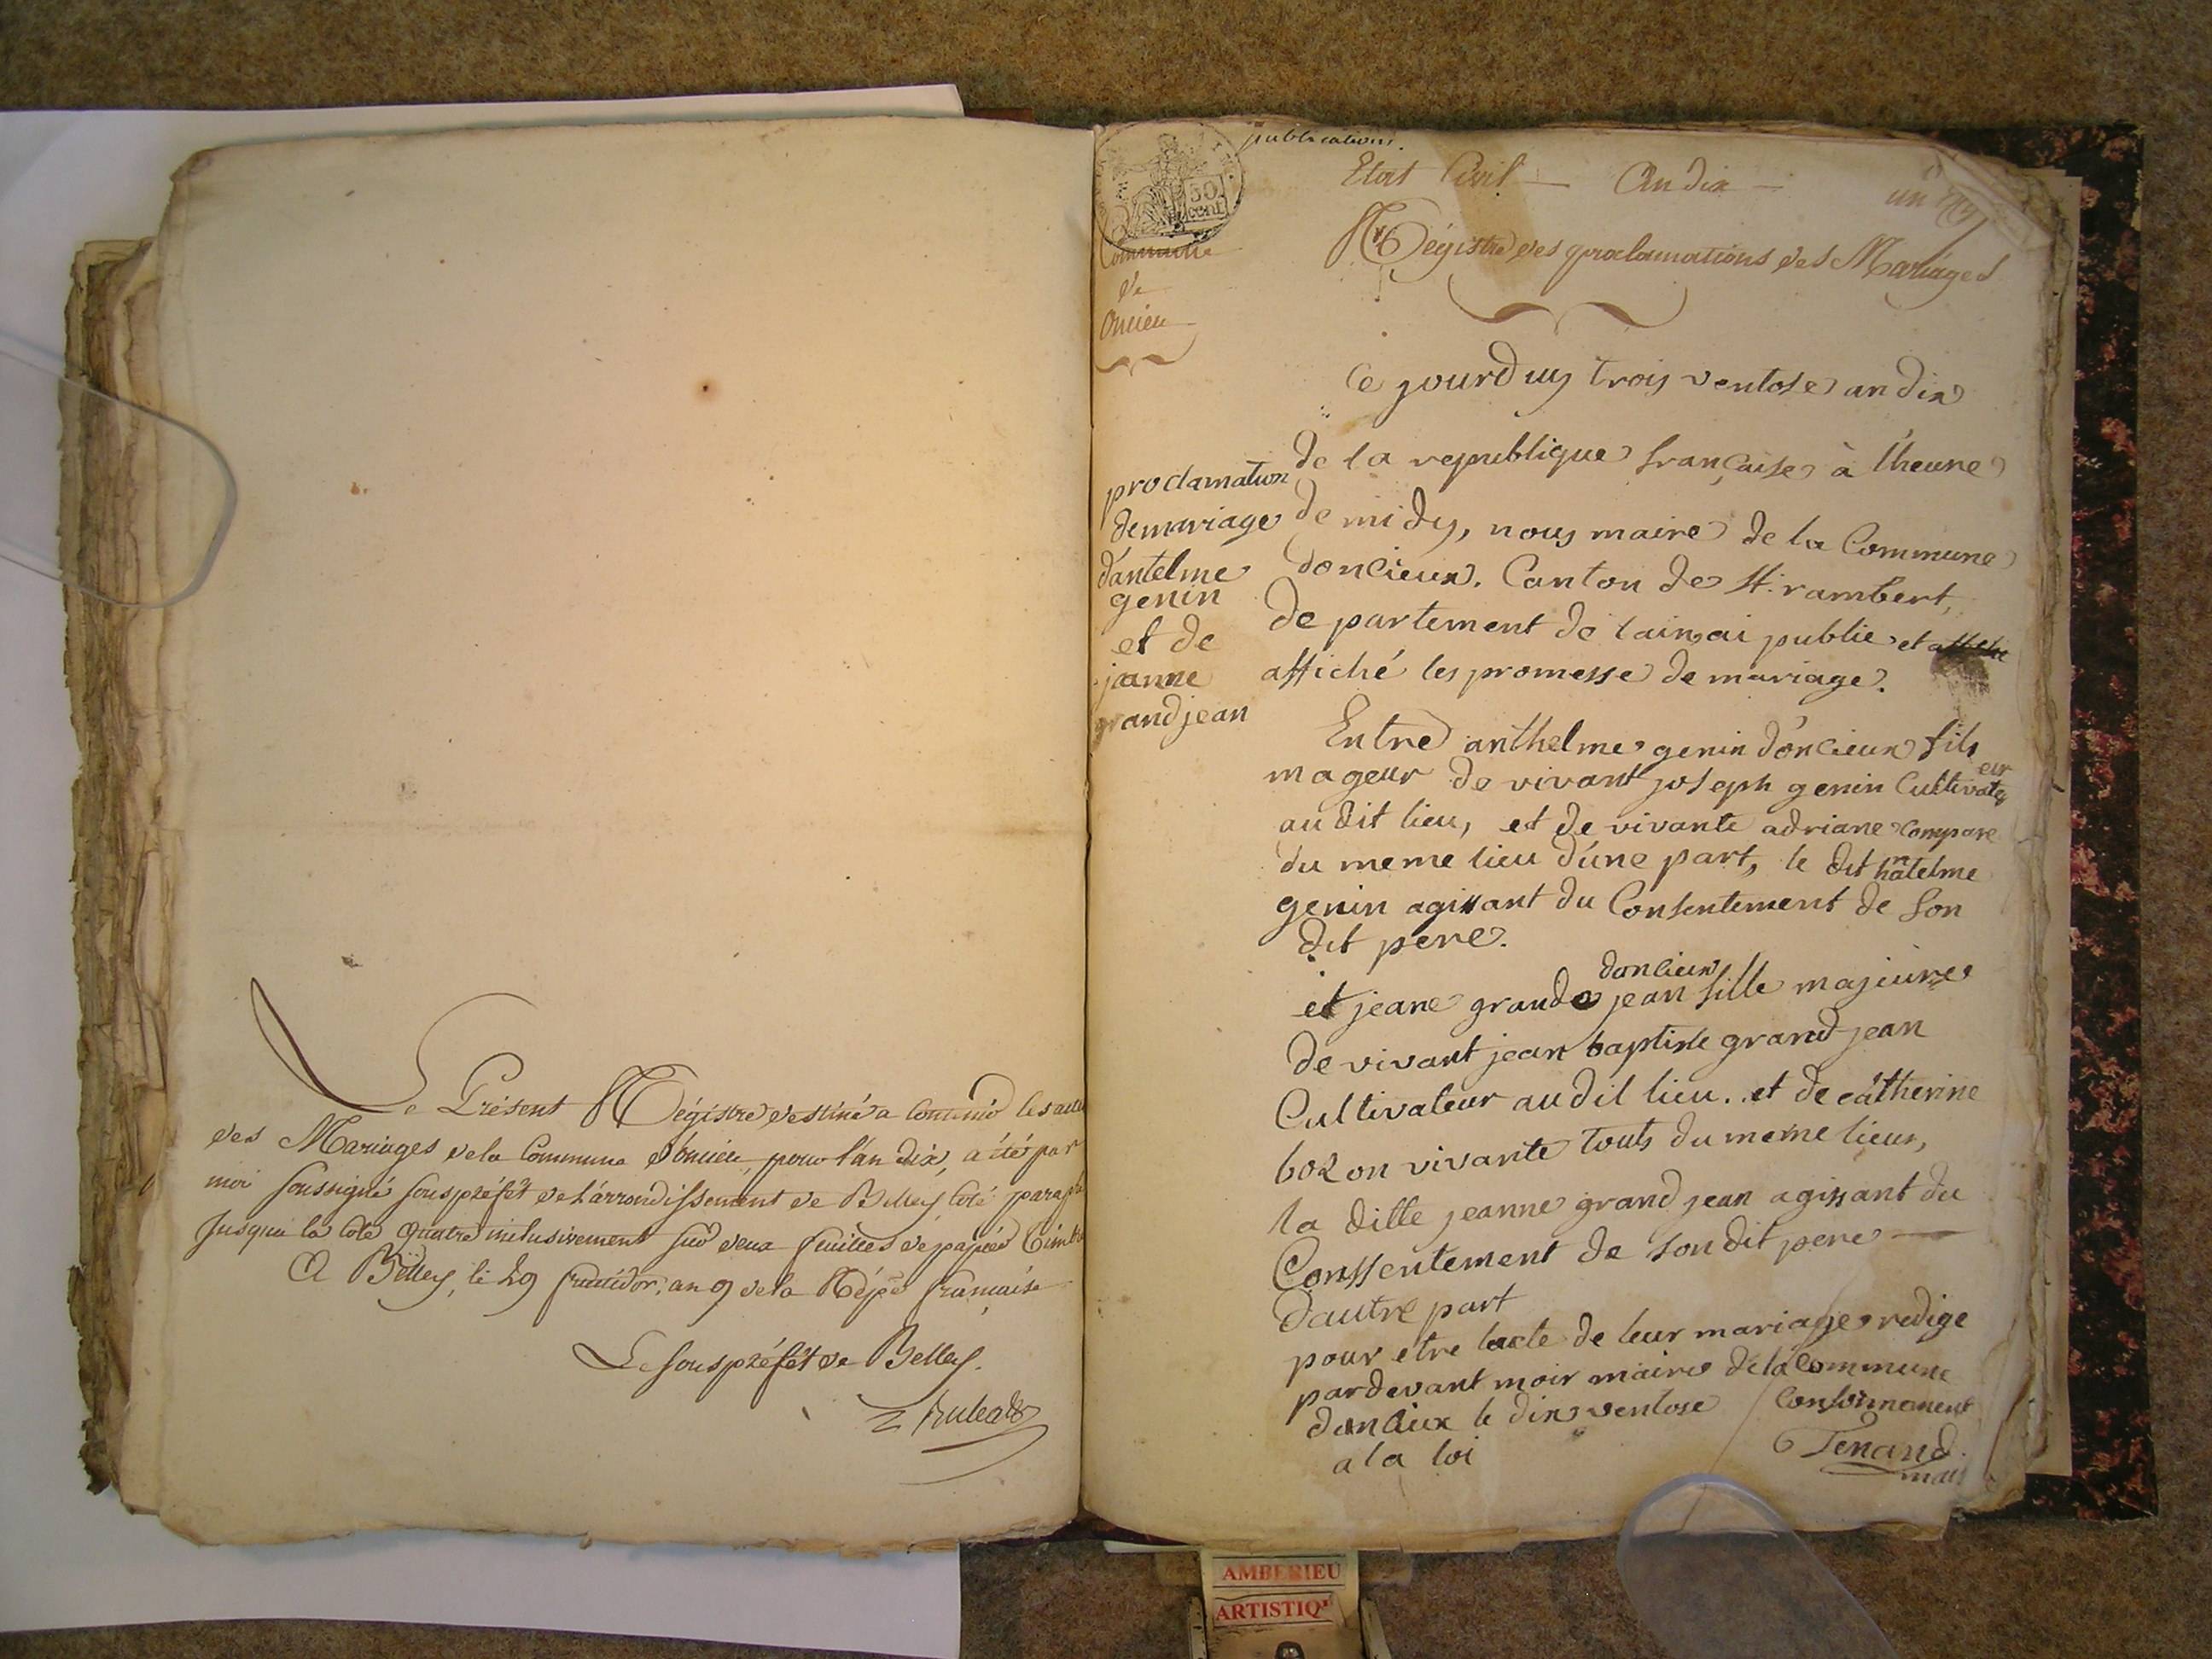 Le Présent Régistre destiné a contenir les actes
des Mariages de la Commune d'onciëu, pour l'an dix, a été par
moi soussigné souspréfét de l'arrondissement de Belley coté paraphé
Jusqua la cote quatre inclusivement sur deux feuilles de papier timbré
A Bëlley, le 29 fructidor, an 9 de la Répe. française
Le souspréfét de Belley.
publications.
50
cent
Etat Civil — An dix —
un
Régistre des proclamations des Mariages
Commune
de
Oncieu
Ce jourduy trois ventose an dix
de la republique française à l'heure
de midy, nous maire de la Commune
doncieux. Canton de St. rambert,
de partement de lain, ai publie et
affiché les promesse de mariage.
proclamation
de mariage
d'antelme
genin
et de
jeanne
grandjean
Entre anthelme genin d'oncieux fils
mageur de vivant joseph genin Cultivateur
au dit lieu, et de vivante adriane compare
du meme lieu d'une part, le dit hantelme
genin agissant du Consentement de son
dit pere.
et jeane grand jean doncieux fille majeure
de vivant jean baptiste grand jean
Cultivateur au dit lieu.. et de catherine
bozon vivante touts du meme lieux,
la ditte jeanne grand jean agissant du
Conssentement de son dit pere —
dautre part
pour etre lacte de leur mariage redige
pardevant moir maire de la Commune
doncieux le dix ventose Conformement
a la loi
Tenand
maire
AMBERIEU
ARTISTIQ